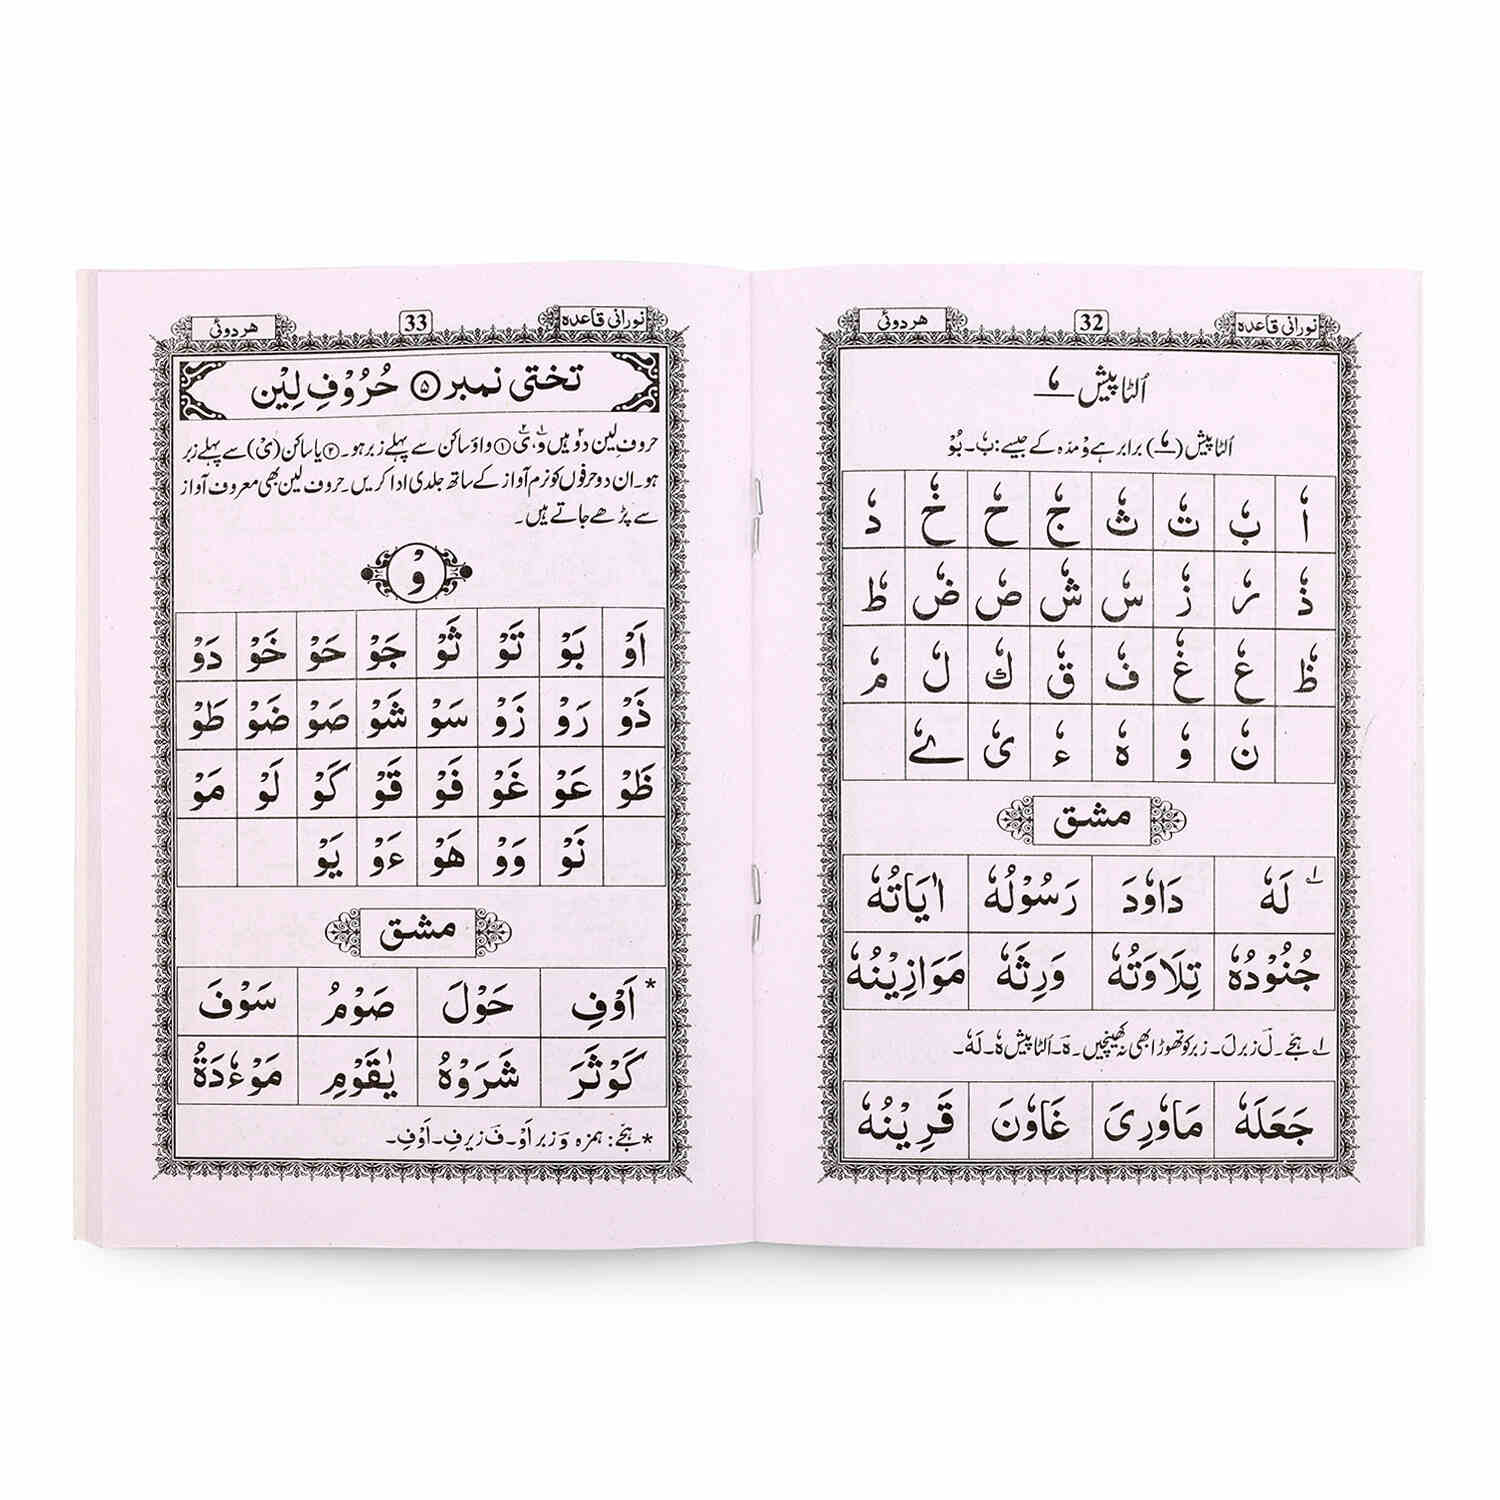 نورانی قاعدہ 32 ھردوئی
اُلٹا پیش ـٗـ
اُلٹا پیش (ـٗـ) برابر ہے وْ مدّہ کے جیسے: بٗ۔ بُوْ
اٗ بٗ تٗ ثٗ جٗ حٗ خٗ دٗ
ذٗ رٗ زٗ سٗ شٗ صٗ ضٗ طٗ
ظٗ عٗ غٗ فٗ قٗ كٗ لٗ مٗ
نٗ وٗ ہٗ ءٗ یٗ ےٗ
مشق
لَهٗ ۱؂ دَاوٗدَ رَسُوْلُهٗ اٰيَاتُهٗ
جُنُوْدُهٗ تِلَاوَتُهٗ وَرِثَهٗ مَوَازِيْنُهٗ
۱؂ ہجّے۔ لَ زبر لَ۔ زبر کو تھوڑا بھی نہ کھینچیں۔ ہٗ۔ اُلٹا پیش ہٗ۔ لَہٗ۔
جَعَلَهٗ مَاوٗرِیَ غَاوٗنَ قَرِيْنُهٗ
نورانی قاعدہ 33 ھردوئی
تختی نمبر ۵ حُرُوْفِ لِیْن
حروفِ لین دو ہیں وْ، یْ ۱ واؤ ساکن سے پہلے زبر ہو۔ ۲ یا ساکن (یْ) سے پہلے زبر
ہو۔ ان دو حرفوں کو نرم آواز کے ساتھ جلدی ادا کریں۔ حروف لین بھی معروف آواز
سے پڑھے جاتے ہیں۔
وْ
اَوْ بَوْ تَوْ ثَوْ جَوْ حَوْ خَوْ دَوْ
ذَوْ رَوْ زَوْ سَوْ شَوْ صَوْ ضَوْ طَوْ
ظَوْ عَوْ غَوْ فَوْ قَوْ كَوْ لَوْ مَوْ
نَوْ وَوْ هَوْ ءَوْ يَوْ
مشق
* اَوْفِ حَوْلَ صَوْمُ سَوْفَ
كَوْثَرَ شَرَوْهُ يٰقَوْمِ مَوْءٗدَةُ
* ہجّے: ہمزہ وَ زبر اَوْ۔ فَ زیر فِ۔ اَوْفِ۔